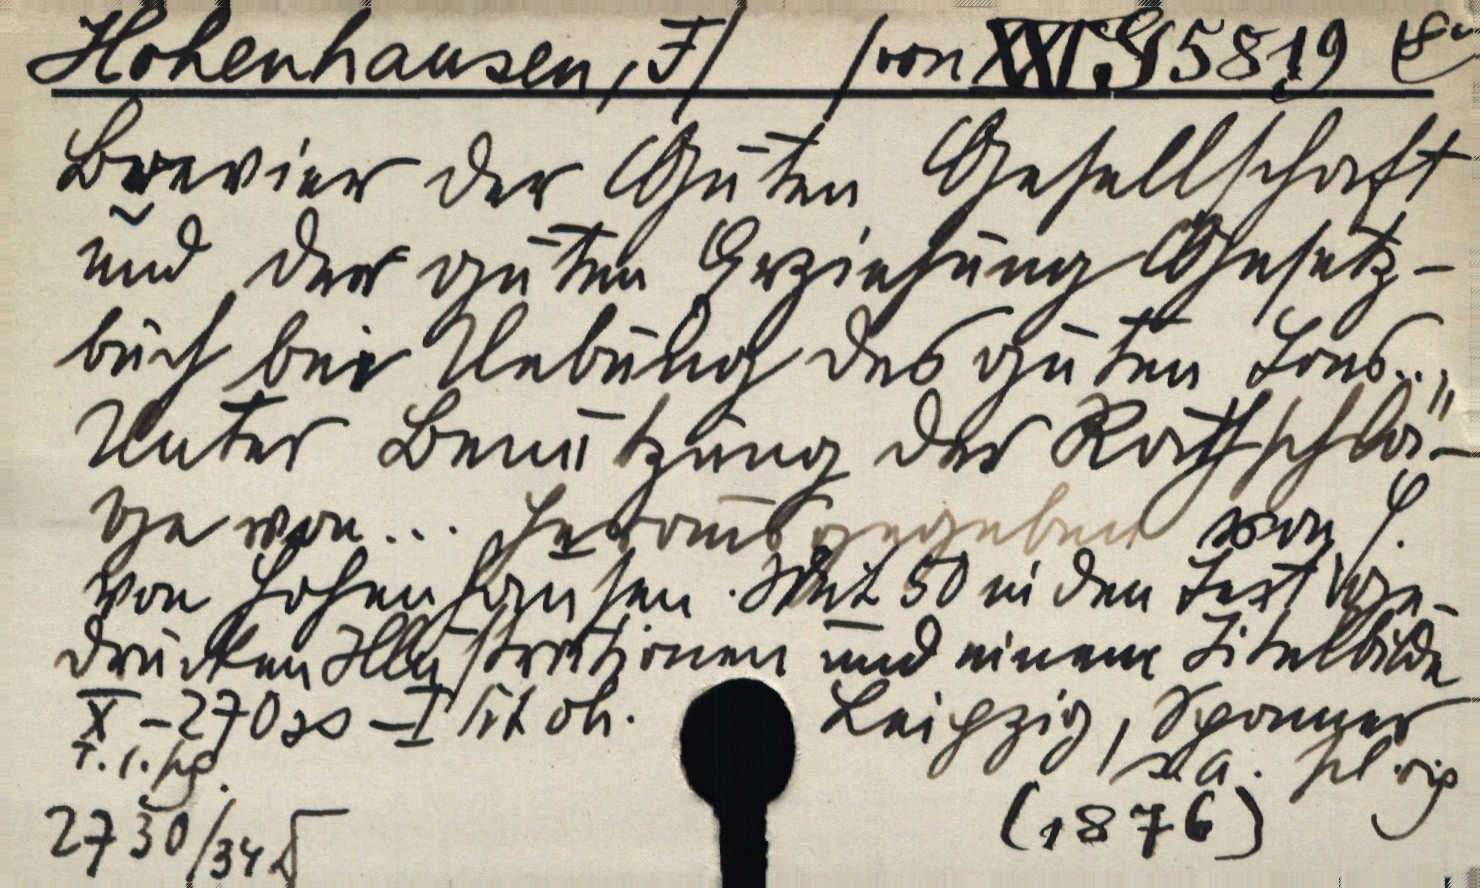 Hohenhausen, F/ /von XXI.G 5819
Brevier der Guten Gesellschaft
und der guten Erziehung Gesetz-
buch bei Uebung des guten Tons...
Unter Benützung der Rathschlä-
ge von ... Herausgegeben von F.
von Hohenhausen. Mit 50 in den Text ge-
druckten Illustrationen und einem Titelbilde
X-270 ss -I Leipzig, Spamer
s.a.
(1876)
2730/34